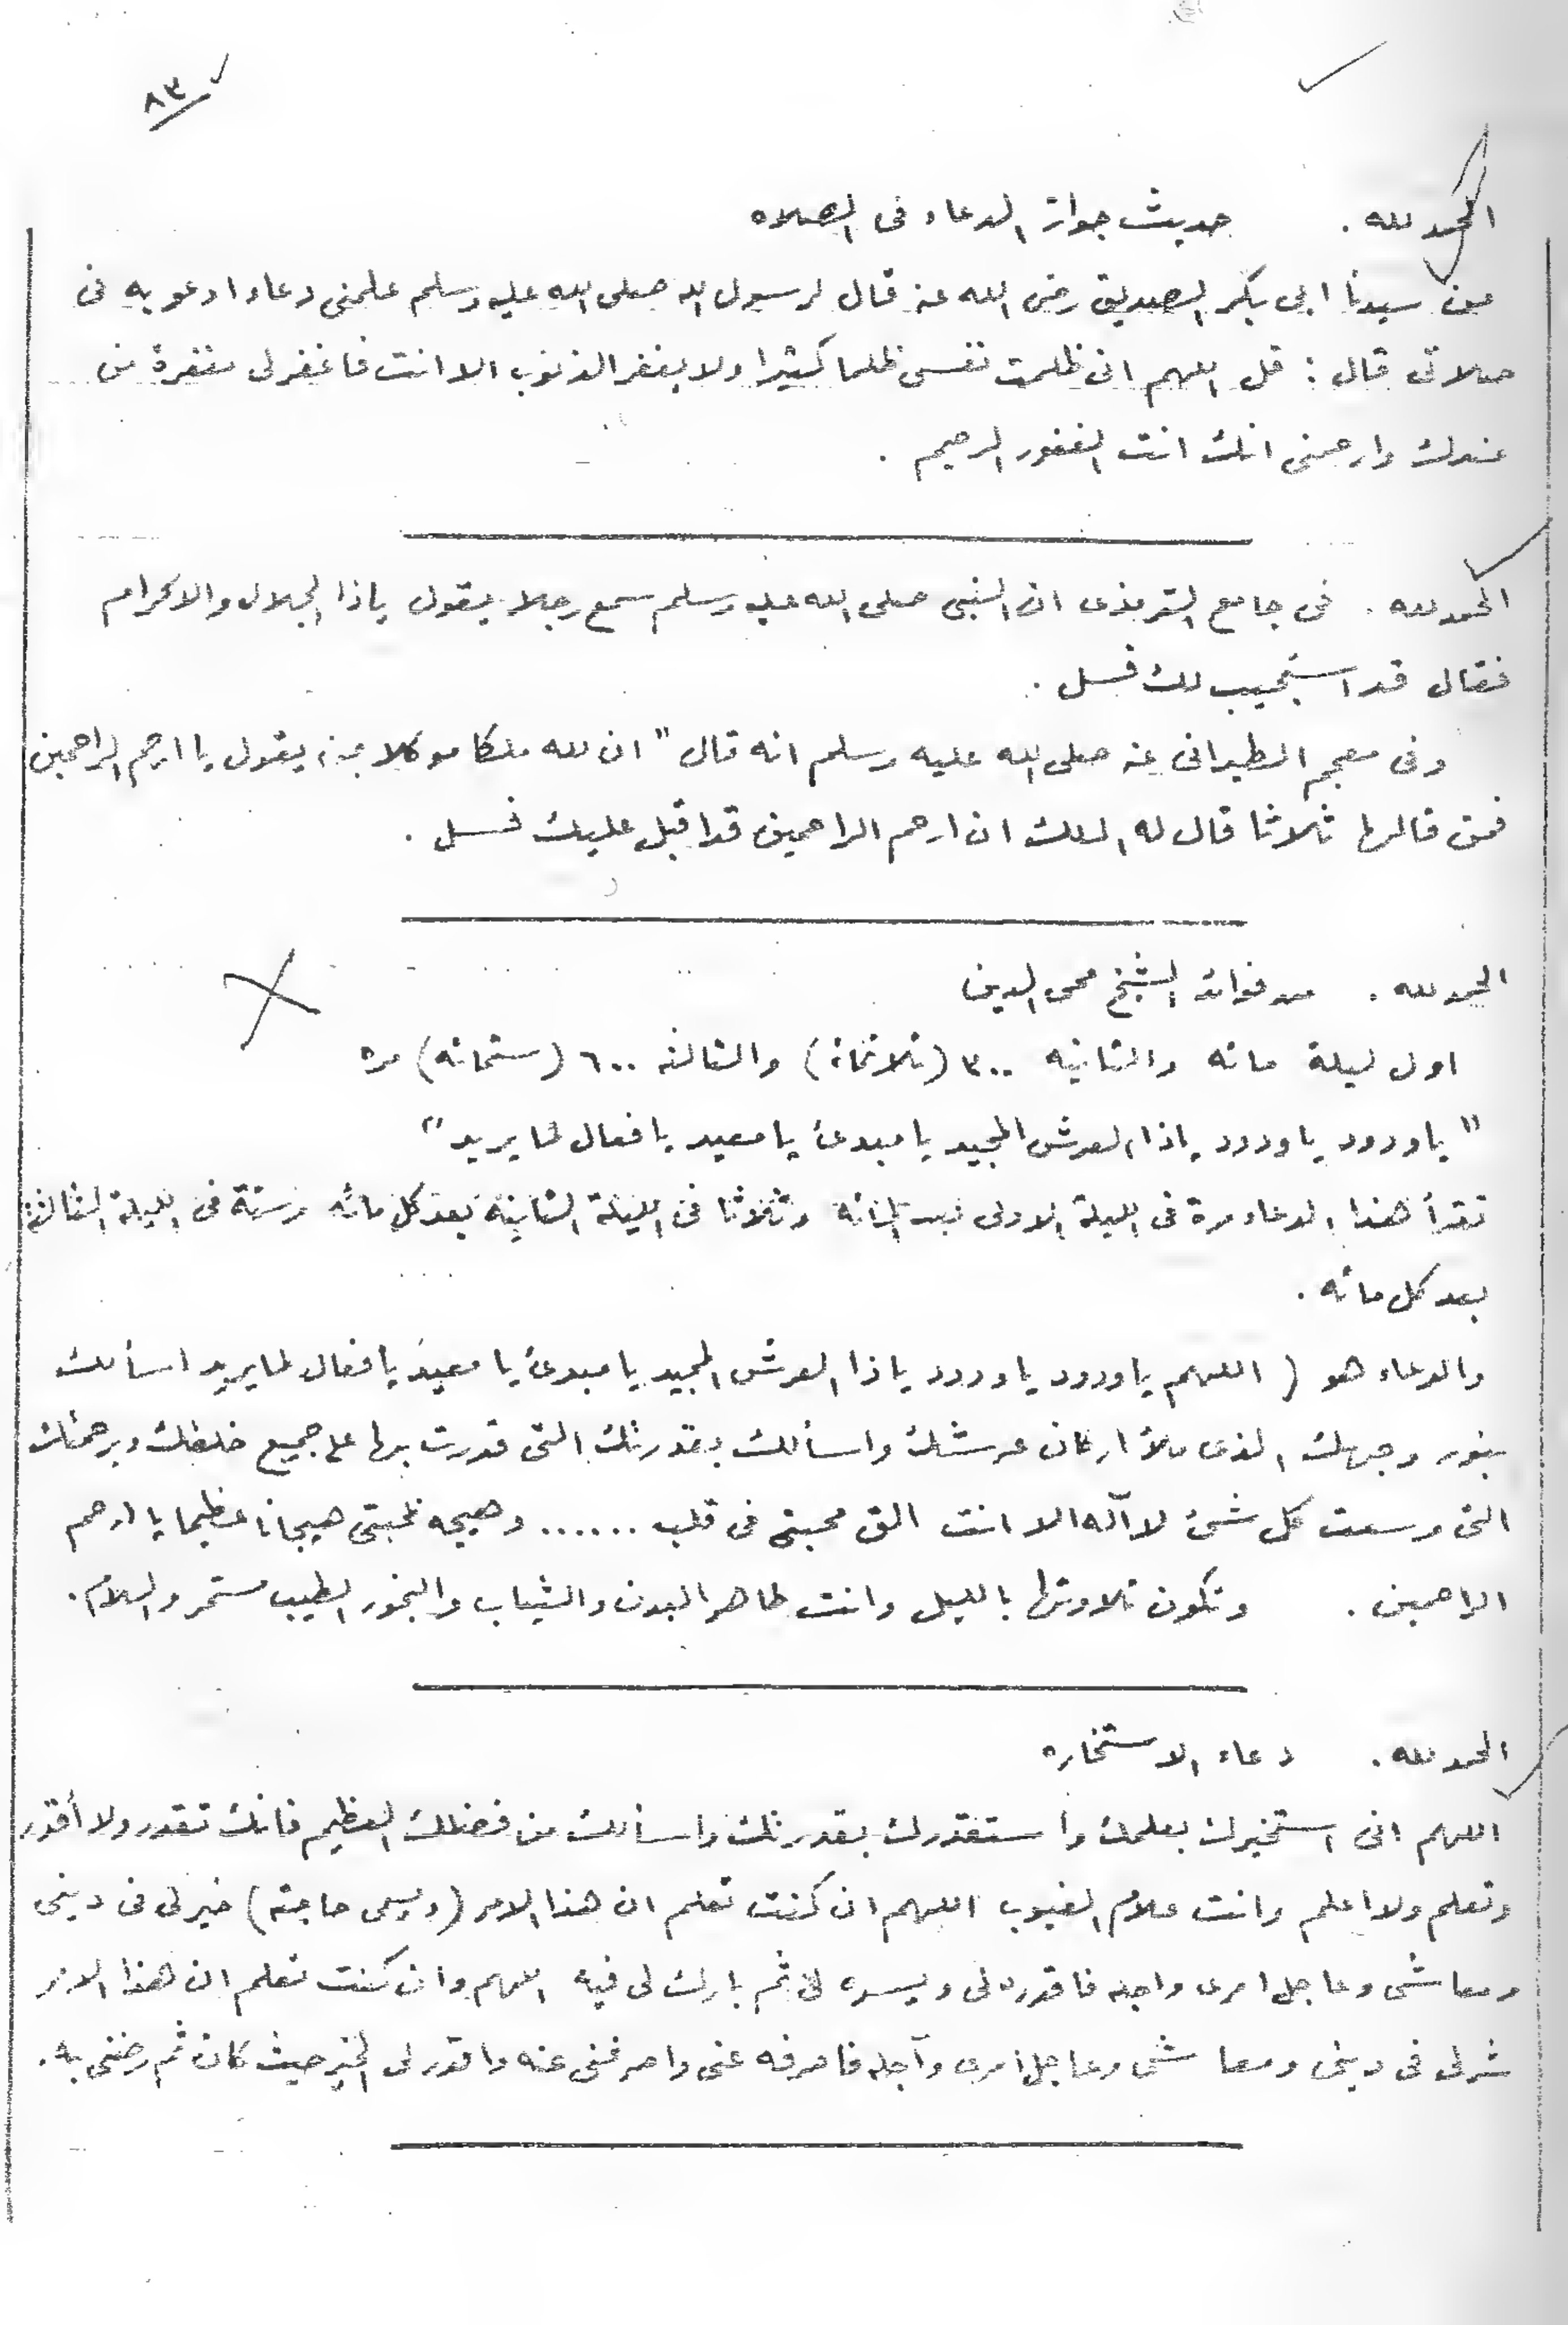 ٨٣
الحمد لله . حديث جواز الدعاء فى الصلاه
عن سيدنا ابى بكر الصديق رضى الله عنه قال لرسول الله صلى الله عليه وسلم علمنى دعاء ادعو به فى
صلاتى قال : قل اللهم انى ظلمت نفسى ظلما كثيرا ولا يغفر الذنوب الا انت فاغفر لى مغفرة من
عندك وارحمنى انك انت الغفور الرحيم .
الحمد لله . فى جامع الترمذى ان النبى صلى الله عليه وسلم سمع رجلا يقول ياذا الجلال والاكرام
فقال قد استجيب لك فسل .
وفى معجم الطبرانى عنه صلى الله عليه وسلم انه قال " ان لله ملكا موكلا بمن يقول يا ارحم الراحمين
فمن قالها ثلاثا قال له الملك ان ارحم الراحمين قد اقبل عليك فسل .
الحمد لله . من فوائد الشيخ محى الدين
اول ليلة مائه والثانيه ٣٠٠ (ثلاثمائة) والثالثه ٦٠٠ (ستمائه) مره
" ياودود ياودود ياذا العرش المجيد يا مبدئ يا معيد يا فعال لما يريد "
تقرأ هذا الدعاء مرة فى الليلة الاولى بعد المائه وثلاثا فى الليلة الثانية بعد كل مائه وستة فى الليلة الثالثة
بعد كل مائه .
والدعاء هو ( اللهم ياودود ياودود ياذا العرش المجيد يا مبدئ يا معيد يا فعال لما يريد اسألك
بنور وجهك الذى ملأ اركان عرشك واسألك بقدرتك التى قدرت بها على جميع خلقك وبرحمتك
التى وسعت كل شئ لا آله الا انت الق محبتى فى قلب ...... وهيجه لمحبتى هيجانا عظيما يا ارحم
الراحمين . وتكون تلاوتها بالليل وانت طاهر البدن والثياب والبخور الطيب مستمر والسلام .
الحمد لله . دعاء الاستخاره
اللهم انى استخيرك بعلمك وأستقدرك بقدرتك وأسألك من فضلك العظيم فانك تقدر ولا أقدر
وتعلم ولا اعلم وانت علام الغيوب اللهم ان كنت تعلم ان هذا الامر (ويسمى حاجته) خير لى فى دينى
ومعاشى وعاجل امرى واجله فاقدره لى ويسره لى ثم بارك لى فيه اللهم وان كنت تعلم ان هذا الامر
شر لى فى دينى ومعاشى وعاجل امرى وآجله فاصرفه عنى واصرفنى عنه واقدر لى الخير حيث كان ثم رضنى به .